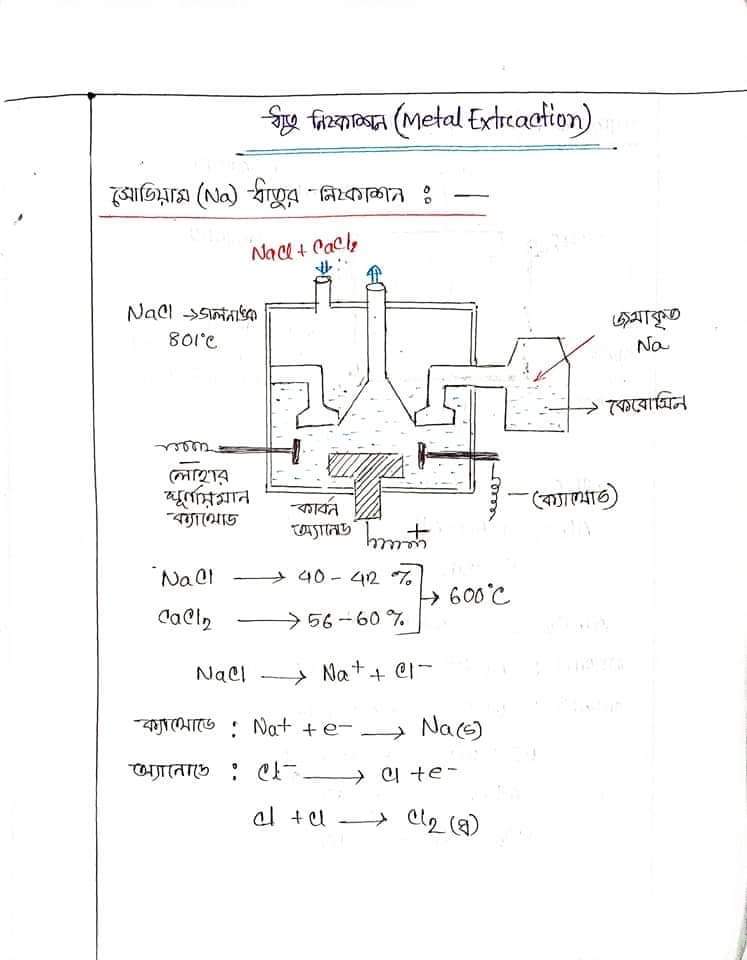 ধাতু নিষ্কাশন (Metal Extraction)
সোডিয়াম (Na) ধাতুর নিষ্কাশন : —
NaCl + CaCl₂
NaCl → গলনাঙ্ক
801°C
জমাকৃত
Na
কেরোসিন
লোহার
ঘূর্ণায়মান
ক্যাথোড
কার্বন
অ্যানোড
+
(ক্যাথোড)
NaCl → 40 - 42 %
CaCl₂ → 56 - 60 %
→ 600°C
NaCl → Na⁺ + Cl⁻
ক্যাথোডে : Na⁺ + e⁻ → Na(s)
অ্যানোডে : Cl⁻ → Cl + e⁻
Cl + Cl → Cl₂ (g)